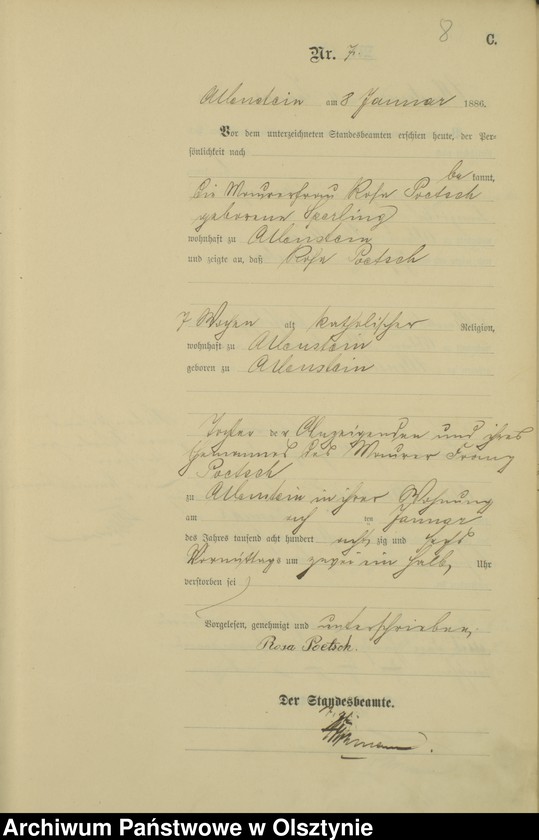 8
C.
Nr. 7.
Allenstein am 8 Januar 1886.
Vor dem unterzeichneten Standesbeamten erschien heute, der Per-
sönlichkeit nach
be kannt,
die Maurerfrau Rosa Poetsch
geborene Sperling
wohnhaft zu Allenstein
und zeigte an, daß Rosa Poetsch
7 Wochen alt, katholischer Religion,
wohnhaft zu Allenstein
geboren zu Allenstein
Tochter der Anzeigenden und ihres
Ehemannes des Maurer Franz
Poetsch
zu Allenstein in ihrer Wohnung
am acht ten Januar
des Jahres tausend acht hundert acht zig und sechs
Vormittags um zwei ein halb Uhr
verstorben sei
Vorgelesen, genehmigt und unterschrieben,
Rosa Poetsch.
Der Standesbeamte.
Archiwum Państwowe w Olsztynie